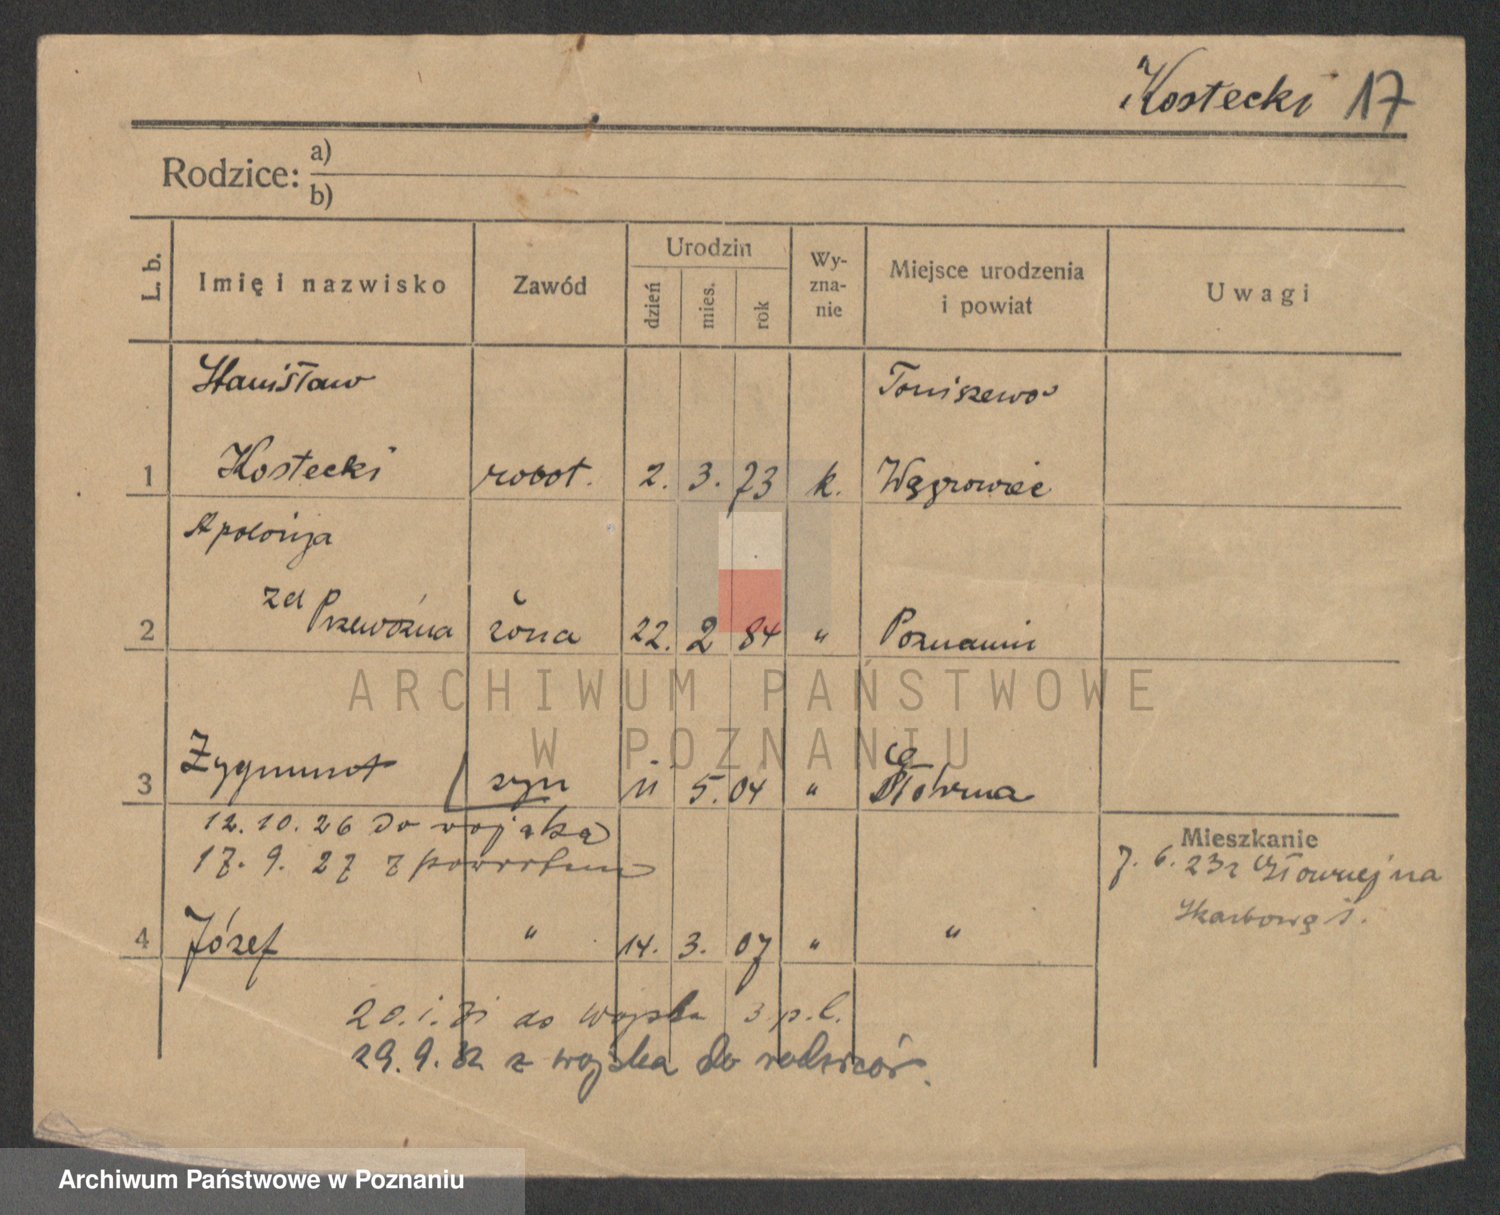 Kostecki 17
Rodzice: a)
b)
L. b. Imię i nazwisko Zawód Urodzin dzień mies. rok Wy-zna-nie Miejsce urodzenia i powiat Uwagi
Stanisław Toniszewo
1 Kostecki robot. 2. 3. 73 k. Wągrowiec
Apolonja
2 zd Przewoźna żona 22. 2 84 " Poznaniu
3 Zygmunt syn 11 5. 04 " Główna
12.10.26 do wojska
17. 9. 27 z powrotem
Mieszkanie
7. 6. 23 z Głównej na
Skarbową
4 Józef " 14. 3. 07 " "
20.1.31 do wojska 3 p.l.
29.9.32 z wojska do rodziców.
ARCHIWUM PAŃSTWOWE
W POZNANIU
Archiwum Państwowe w Poznaniu